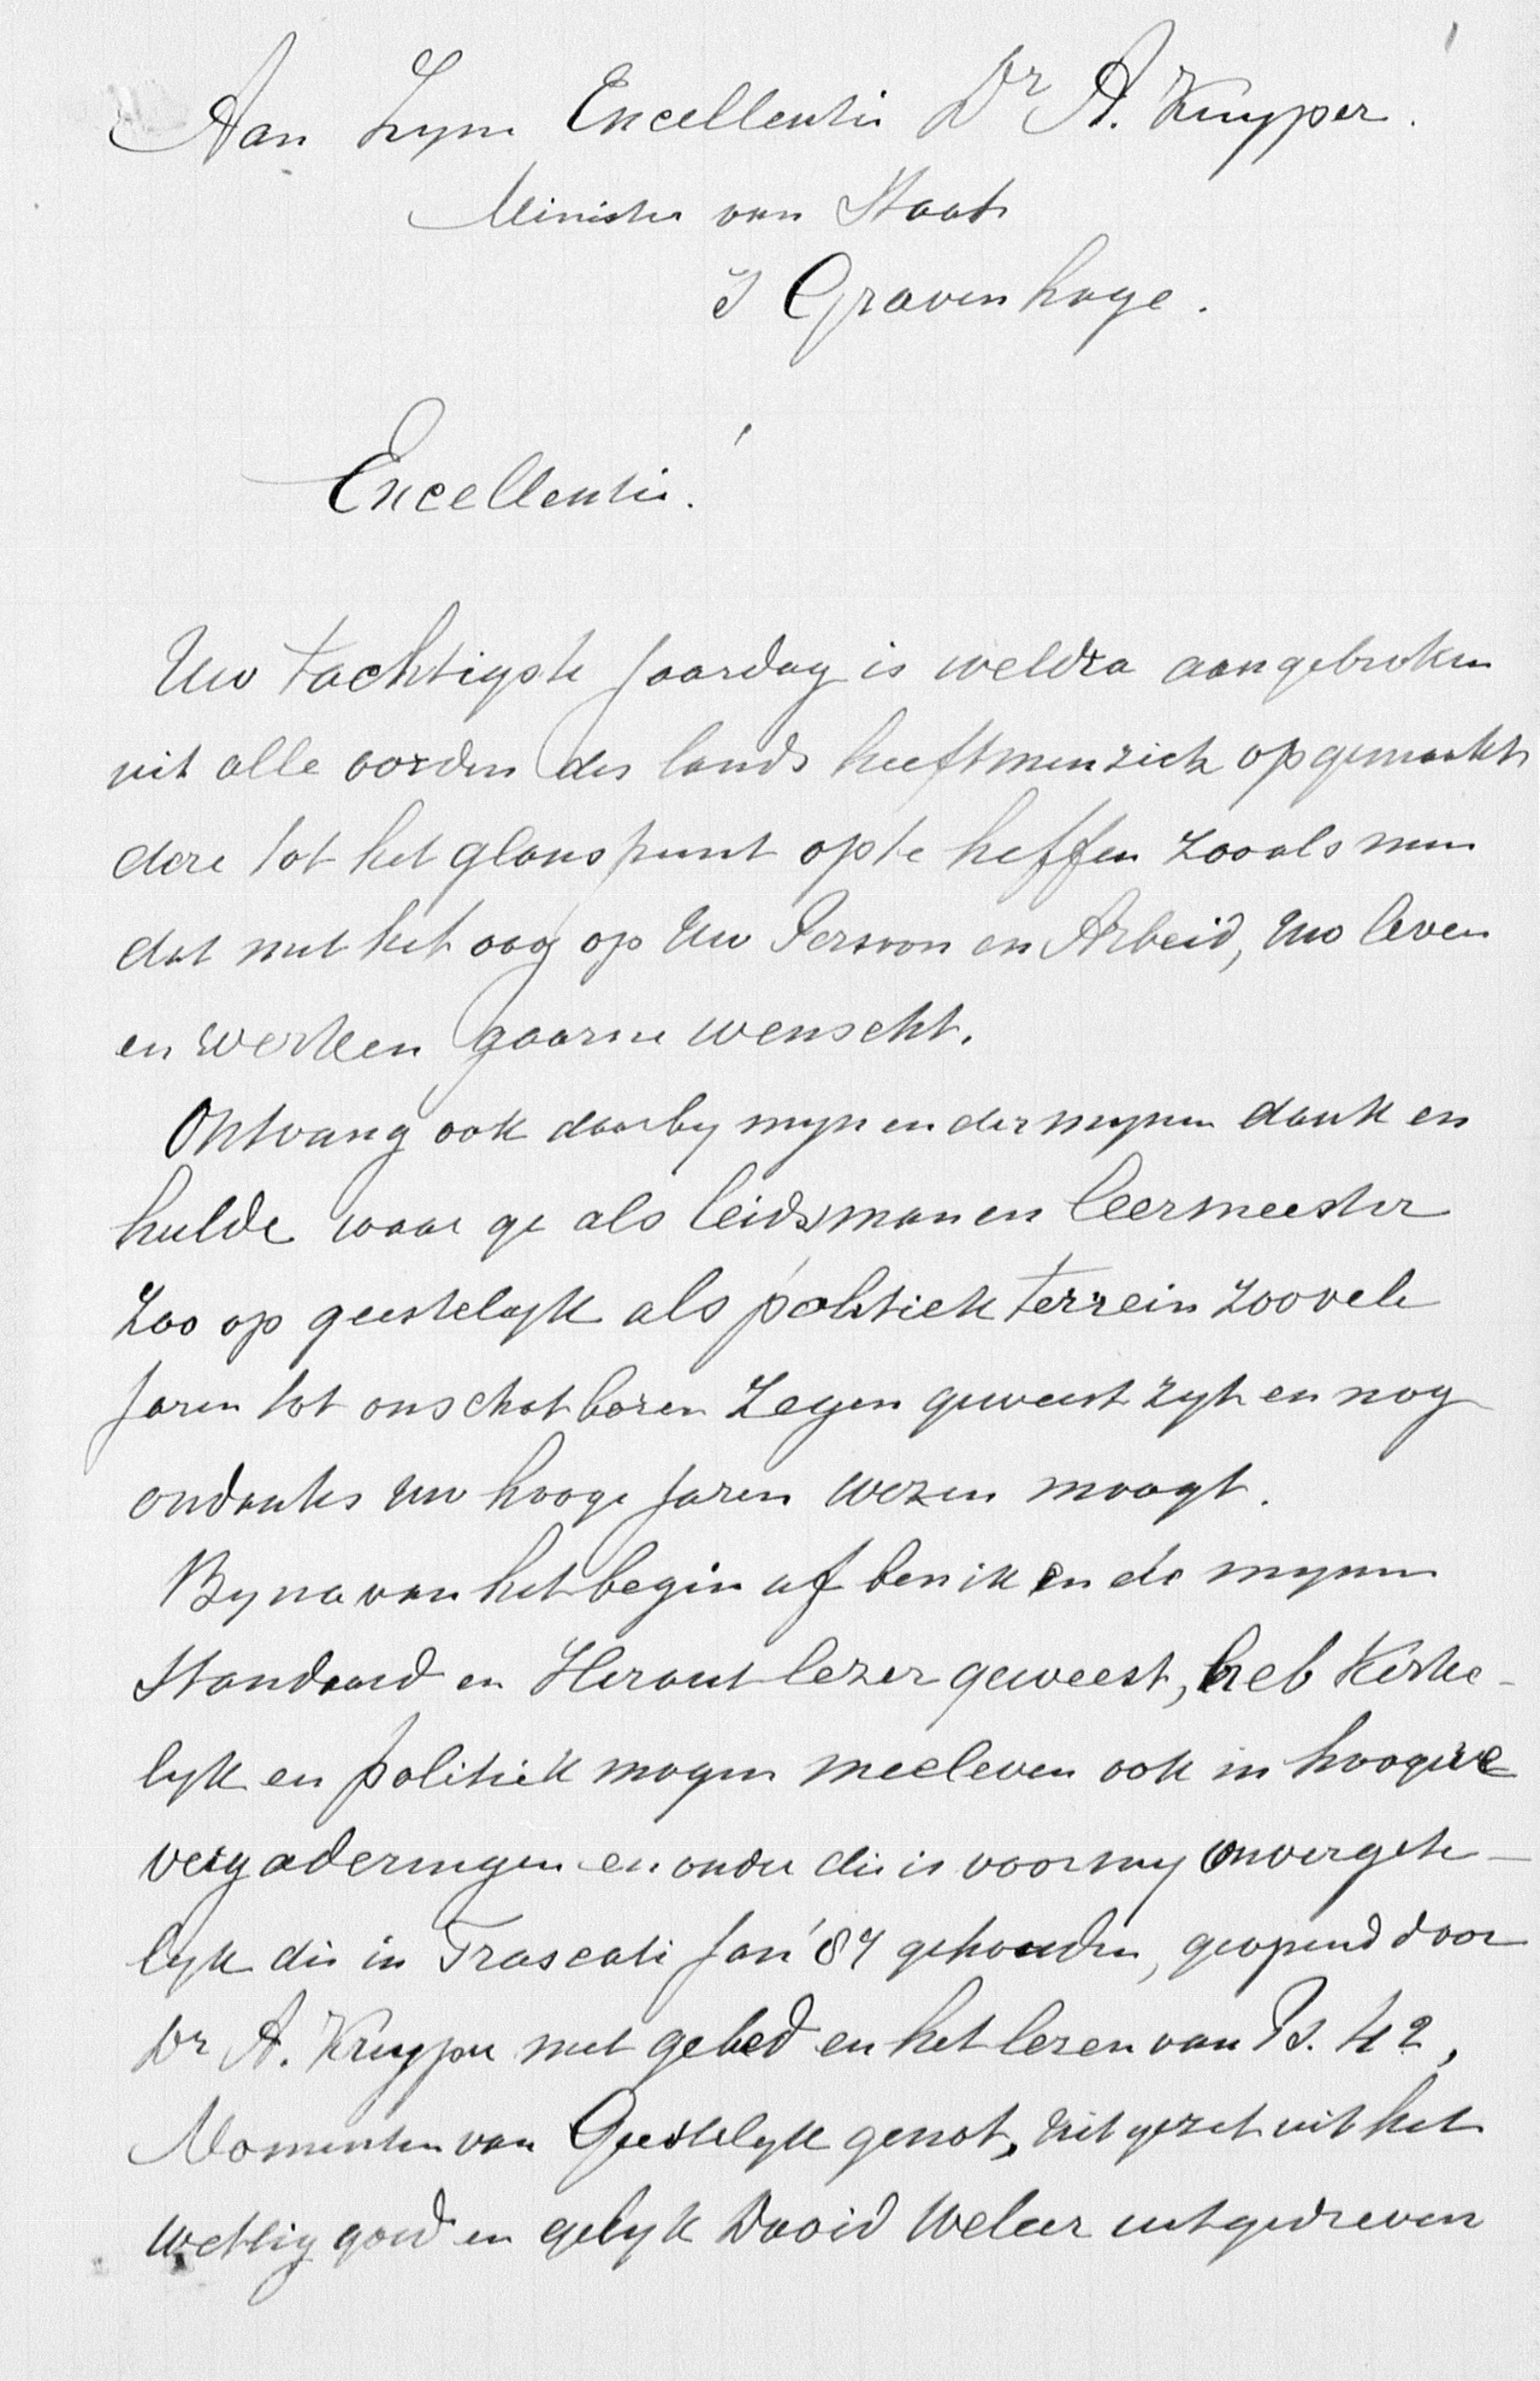 Aan Zyne Excellentie Dr A. Kuyper.
Minister van Staat
S Gravenhage.
Excellentie!
Uw tachtigste Jaardag is weldra aangebroken
uit alle oorden des lands heeft men zich opgemaakt
deze tot het glanspunt op te heffen zooals men
dat met het oog op Uw Persoon en Arbeid, Uw leven
en werken gaarne wenscht.
Ontvang ook daarby myn en der mynen dank en
hulde waar ge als leidsman en leermeester
Zoo op geestelyk als politiek terrein zoovele
Jaren tot onschatbaren Zegen geweest zyt en nog
ondanks Uw hooge Jaren wezen moogt.
Byna van het begin af ben ik en de mynen
Standaard en Heraut lezer geweest, heb Kerke-
lyk en politiek mogen meeleven ook in hoogere
vergaderingen en onder die is voor my onverget-
lyk die in Frascati Jan '87 gehouden, geopend door
Dr A. Kuyper met gebed en het lezen van Ps. 42,
Momenten van Geestelyk genot, uitgezet uit het
wettig goed en gelyk David weleer uitgedreven